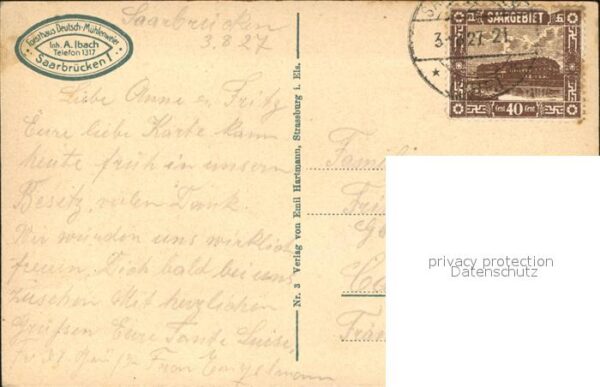 Forsthaus Deutsch-Mühlenweier
Inh. A. Ibach
Telefon 1317
Saarbrücken 1
Saarbrücken
3.8.27
Liebe Anne u. Fritz
Eure liebe Karte kam
heute früh in unsern
Besitz, vielen Dank.
Wir würden uns wirklich
freuen, Dich bald bei uns
Mit herzlichen
Grüssen Eure Tante Luise,
Frau
Nr. 3 Verlag von Emil Hartmann, Strassburg i. Els.
27 21
SAARGEBIET
Cent. 40 Cent.
Famil
privacy protection
Datenschutz